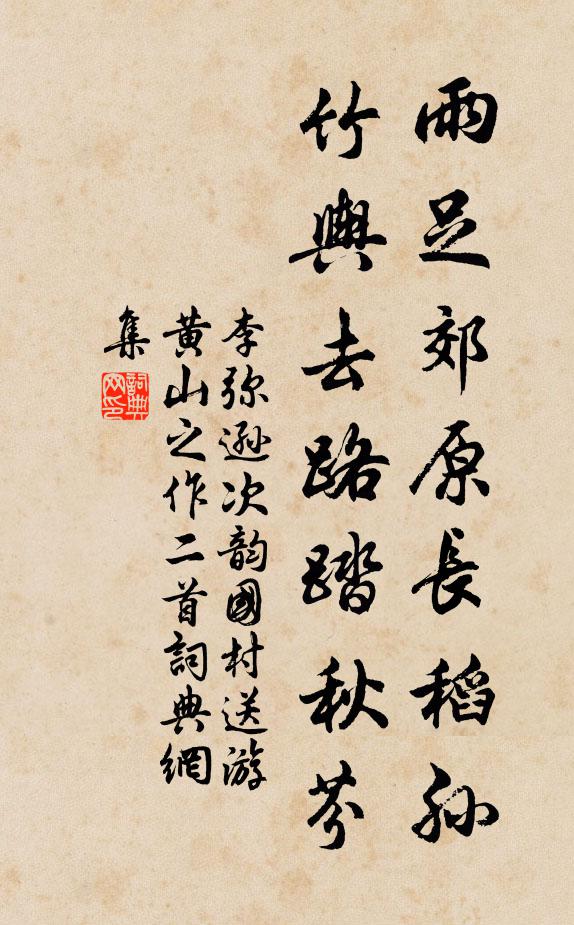 雨足郊原長稻孙
竹輿去路踏秋芬
李弥遜次韵國村送游
黄山之作二首詞典網
集
詞典
网印